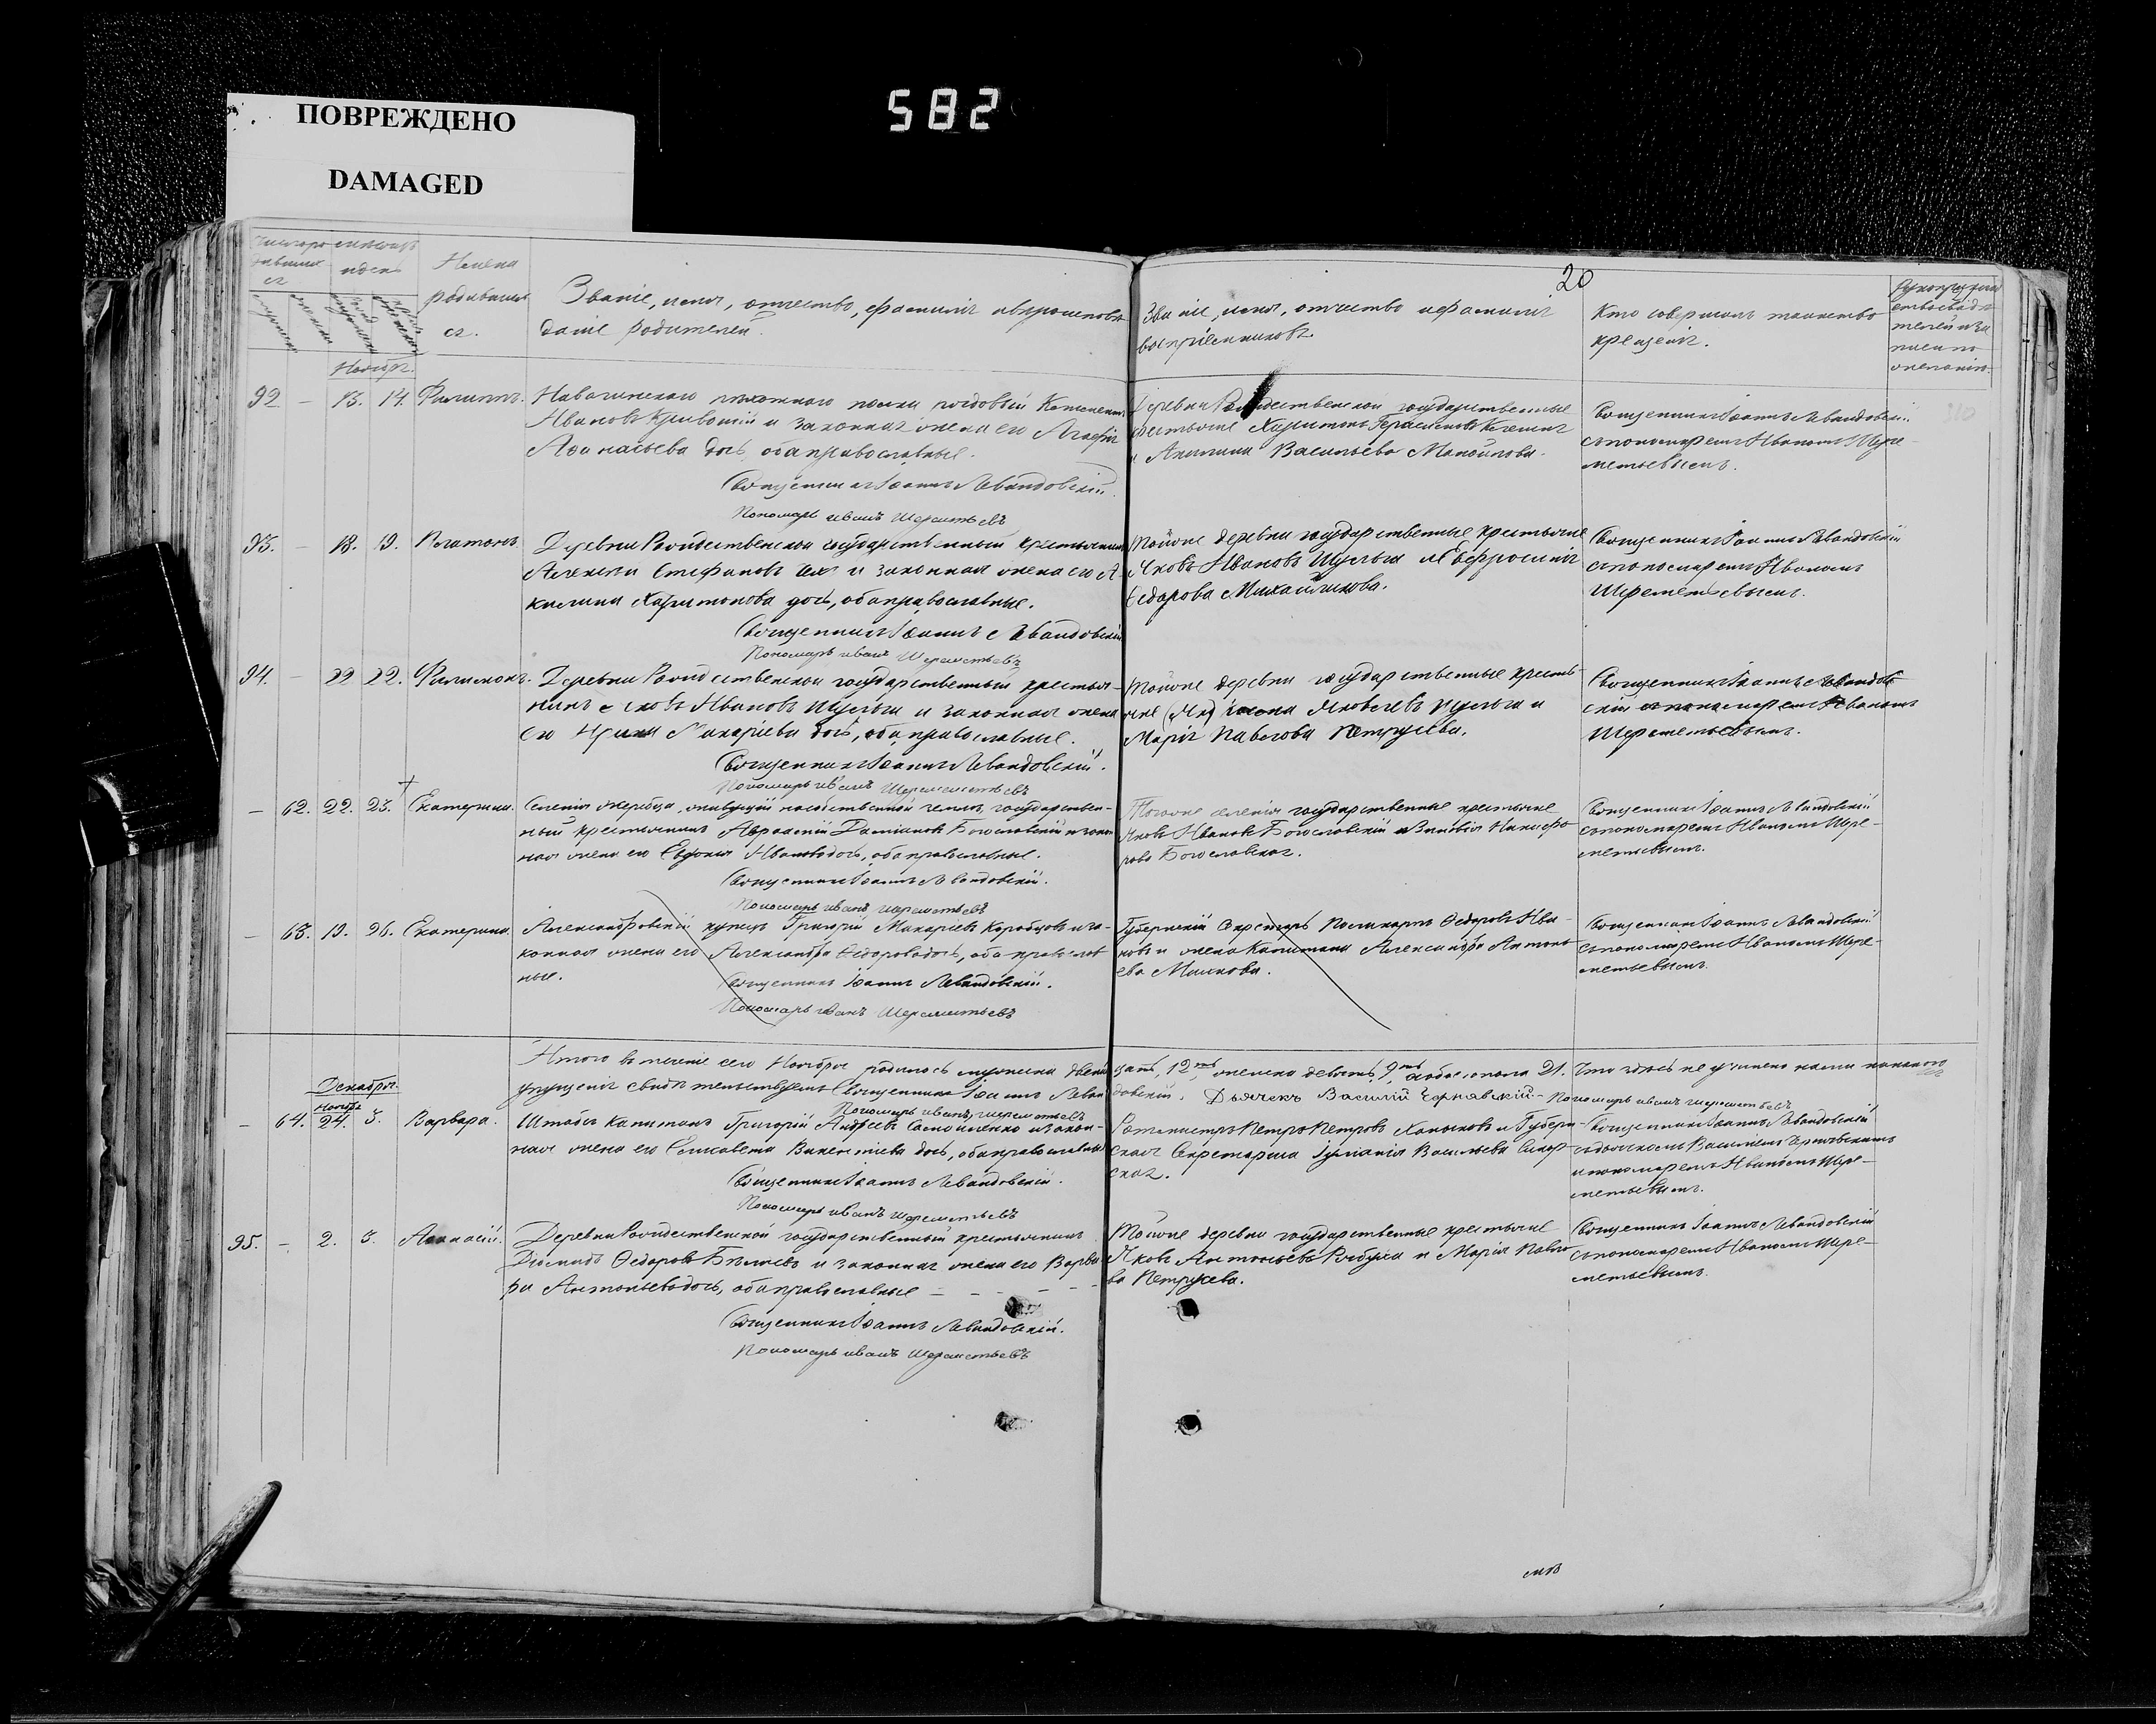 582
ПОВРЕЖДЕНО
DAMAGED
20
Имена
родивших
ся.
Званіе, имя, отчество, фамилія и вѣроисповѣ
даніе родителей.
Званіе, имя, отчество и фамилія
воспріемниковъ.
Кто совершалъ таинство
крещенія.
Ноябрь.
92 – 13. 14. Филиппъ.
Навагинскаго пѣхотнаго полка рядовый
Ивановъ и законная жена его Агафія
Аѳанасьева дочь, оба православные.
Священникъ Іоаннъ Левандовскій.
Пономарь иванъ Шереметьевъ
Деревни Рождественской государственные
крестьяне Харитонъ Герасимовъ
и Акилина Васильева
Священникъ Іоаннъ Левандовскій
съ пономаремъ Иваномъ Шере-
метьевымъ.
93. – 18. 19. Платонъ.
Деревни Рождественской государственный крестьянинъ
Алексѣй Стефановъ и законная жена его А-
килина Харитонова дочь, оба православные.
Священникъ Іоаннъ Левандовскій
Пономарь иванъ Шереметьевъ
Тойже деревни государственные крестьяне
Яковъ Ивановъ Шульга и Ефросинія
Ѳедорова Михайликова.
Священникъ Іоаннъ Левандовскій
съ пономаремъ Иваномъ
Шереметьевымъ.
94. – 22 22. Филимонъ.
Деревни Рождественской государственный крестья-
нинъ Яковъ Ивановъ Шульга и законная жена
его Макаріева дочь, оба православные.
Священникъ Іоаннъ Левандовскій.
Пономарь иванъ Шереметьевъ
Тойже деревни государственные кресть-
яне Яковлевъ Шульга и
Марія Павлова Петрусева.
Священникъ Іоаннъ Левандов-
скій съ пономаремъ Иваномъ
Шереметьевымъ.
– 62. 22. 23. Екатерина.
Селенія живущій на собственной землѣ, государствен-
ный крестьянинъ Даміановъ Богословскій и закон
ная жена его Евдокія Иванова дочь, оба православные.
Священникъ Іоаннъ Левандовскій.
Пономарь иванъ шереметьевъ
Тогоже селенія государственные крестьяне
Яковъ Ивановъ Богословскій и Никифо
рова Богословская.
Священникъ Іоаннъ Левандовскій
съ пономаремъ Иваномъ Шере-
метьевымъ.
– 63. 19. 26. Екатерина.
Александровскій купецъ Григорій Макаріевъ Коробцовъ и за-
конная жена его Александра Ѳедорова дочь, оба православ
ные.
Священникъ Іоаннъ Левандовскій.
Пономарь иванъ Шереметьевъ
Губернскій Секретарь Поликарпъ Ѳедоровъ Ива-
новъ и жена Капитана Александра Антонь
ева
Священникъ Іоаннъ Левандовскій
съ пономаремъ Иваномъ Шере-
метьевымъ.
Итого въ теченіе сего Ноября родилось мужеска двѣнад
цать, 12ть, женска девять, 9ть, обоего пола 21. Что здѣсь не учинено нами никакого
упущенія свидѣтельствуемъ Священникъ Іоаннъ Леван
довскій. Дьячекъ Василій Чернявскій – Пономарь иванъ шереметьевъ
Пономарь иванъ шереметьевъ
Декабрь.
Ноября
– 64. 24. 3. Варвара.
Штабсъ Капитанъ Григорій Андреевъ Самойленко и закон-
ная жена его Елисавета Викентіева дочь, оба православные
Священникъ Іоаннъ Левандовскій.
Пономарь иванъ шереметьевъ
Ротмистръ Петръ Петровъ Ханыковъ и Губерн-
ская Секретарша Іуліанія Васильева
ская.
Священникъ Іоаннъ Левандовскій
съ дьячкомъ Василіемъ Чернявскимъ
и пономаремъ Иваномъ Шере-
метьевымъ.
95. – 2. 3.
Деревни Рождественской государственный крестьянинъ
Діомидъ Ѳедоровъ Бѣляевъ и законная жена его Варва
ра Антоньева дочь, оба православные
Священникъ Іоаннъ Левандовскій.
Пономарь иванъ шереметьевъ
Тойже деревни государственные крестьяне
Яковъ Антоньевъ и Марія Павло
ва Петрусева.
Священникъ Іоаннъ Левандовскій
съ пономаремъ Иваномъ Шере-
метьевымъ.